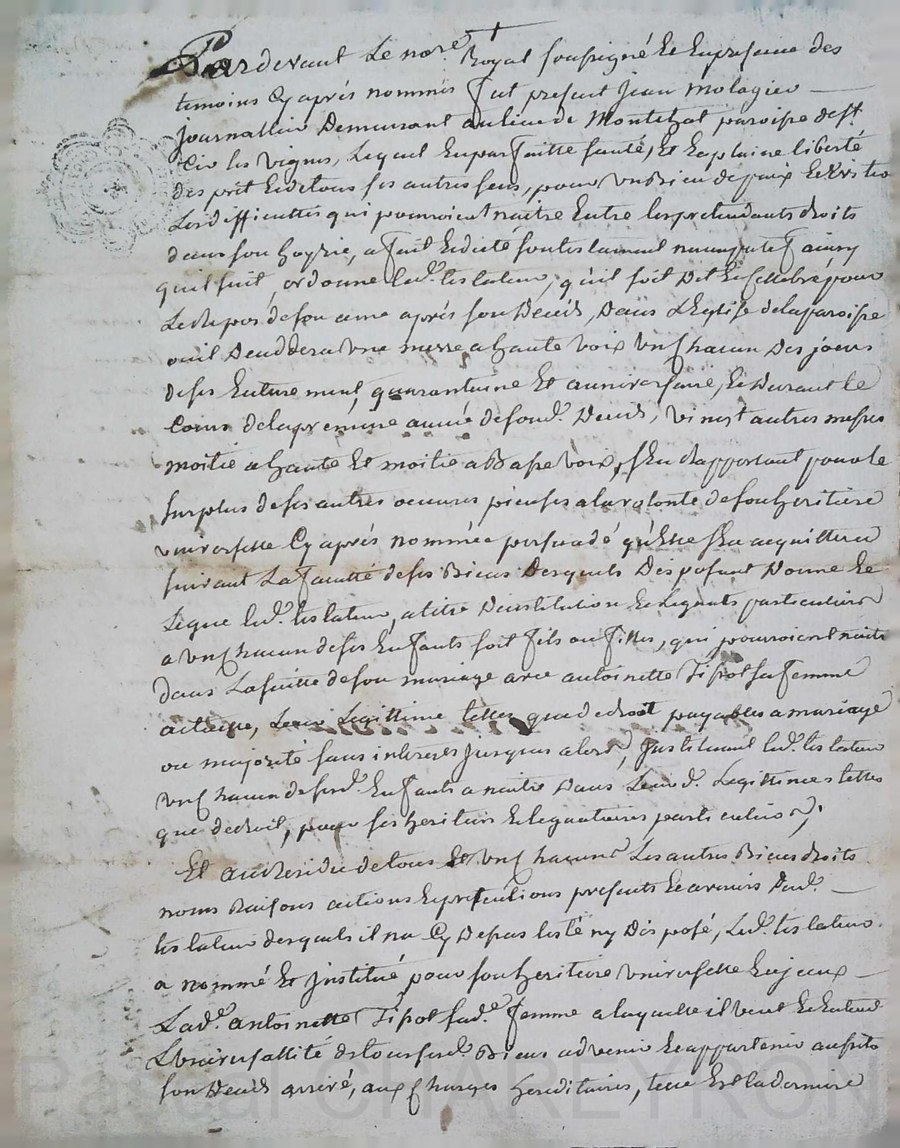 Pardevant Le nore. Royal soussigné Et En presence des
temoins Cy aprés nommés fut present Jean molagier
journallier Demeurant au lieu de Montchal paroisse de st.
Cir les vignes, Lequel En parfaitte santé, Et En plaine liberté
des prit Et de tous ses autres sens, pour un Bien de paix Et
Les difficultés qui pourroient naitre Entre les pretendants droits
dans son hoyrie, a fait Et dicté son testament nuncupatif ainsy
quil suit, ordonne led. testateur, qu'il soit Dit Et Cellebré pour
Le Repos de son ame aprés son Decéds, Dans L'Eglise de la paroisse
ou il Deceddera une messe a haute voix un chacun Des jours
de ses Enterrement, quarantaine Et anniversaire, Et Durant le
Cours de la premiere année de sond. Deceds, vingt autres messes
moitié a haute Et moitié a Basse voix, s'En Rapportant pour le
surplus de ses autres oeuvres pieuses a la volonté de son heritiere
universelle Cy aprés nommée persuadé qu'Elle s'En acquittera
suivant La faculté de ses Biens Desquels Disposant Donne Et
Légue led. testateur, a titre D'institution Et Legats particuliers
a un chacun de ses Enfants soit fils ou filles, qui pourroient naitre
dans La suitte de son mariage avec antoinette Tipot sa femme
actuelle, Leur Legittime telle que de droit payables a mariage
ou majorité sans interets jusques alors, Instituant led. testateur
un chacun de sesd. Enfants a naitre Dans Leurd. Legittimes telles
que de droit, pour ses heritiers Et legataires particuliers,
Et au Residu de tous Et un chacuns Les autres Biens droits
noms Raisons actions Et pretentions presents Et avenirs Dud.
testateur desquels il na Cy Dessus testé ny Disposé, Led. testateur
a nommé Et Institué pour son heritiere universelle
Lad. antoinette Tipot sad. femme a laquelle il veut Et Entend
L'universallité de tous sesd. Biens advenir Et appartenir
son Deceds arrivé, aux Charges hereditaires, telle Est la derniere
Pascal CHAREYRON